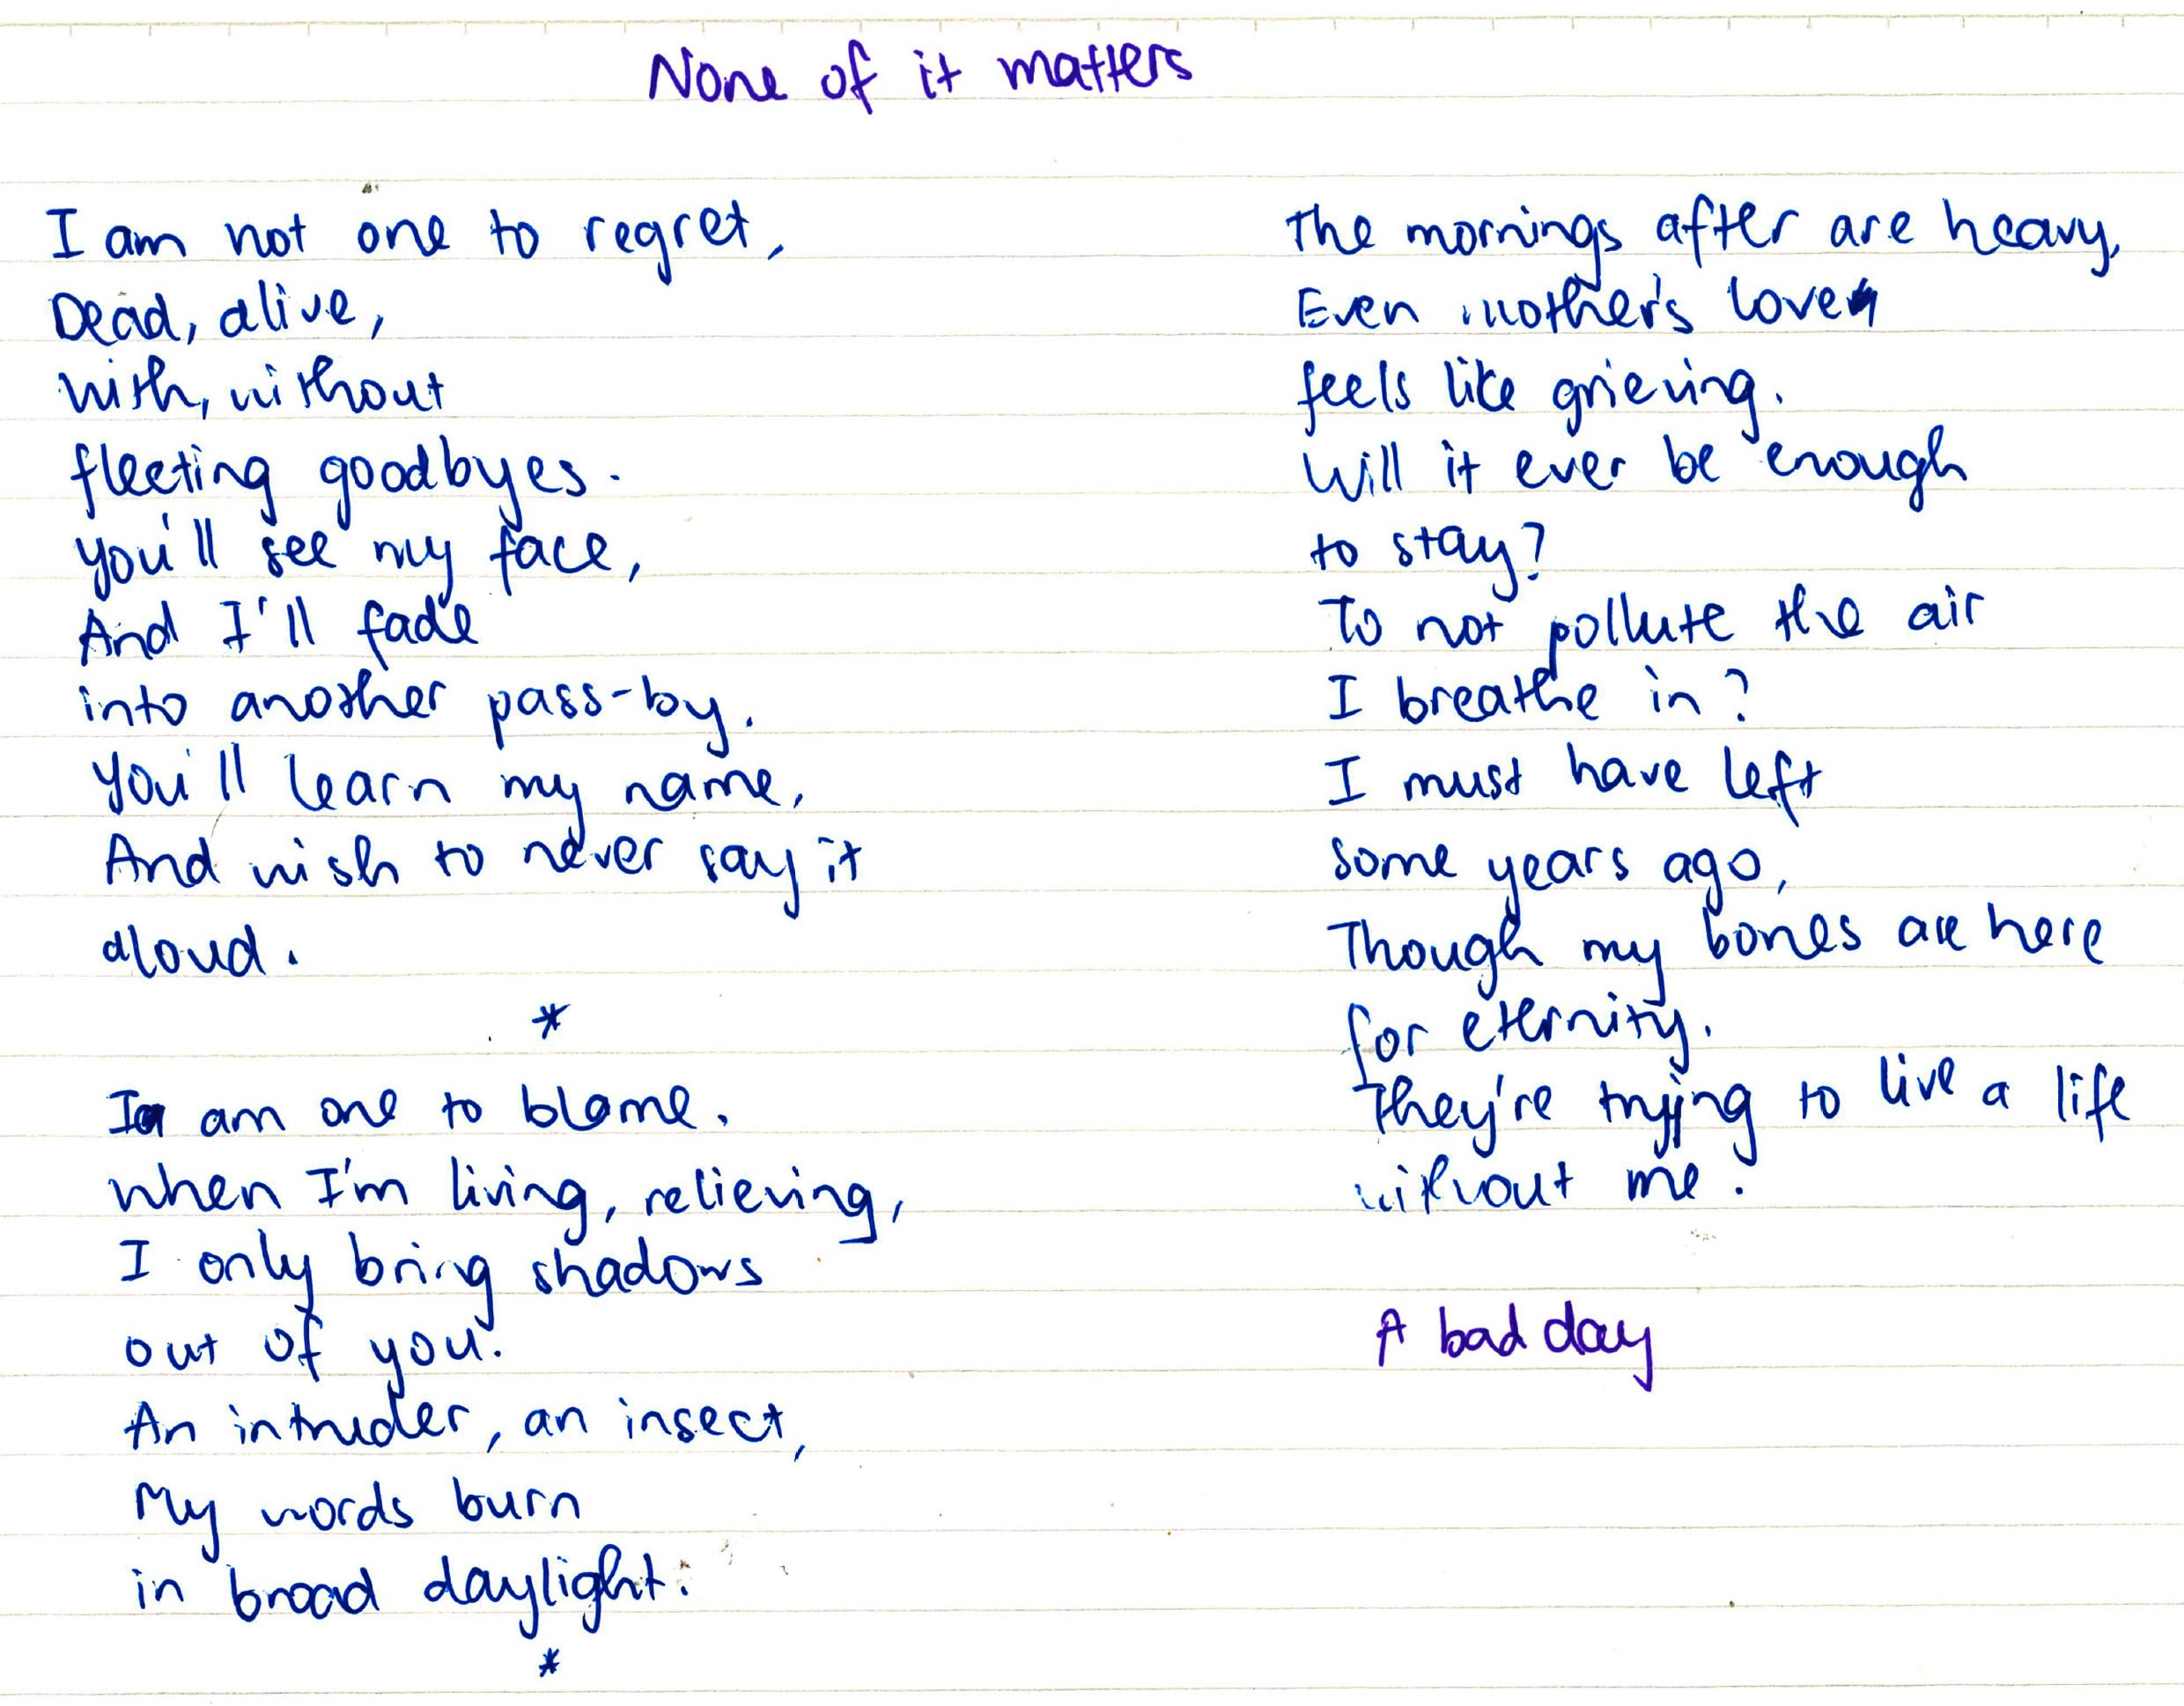 None of it matters
I am not one to regret,
Dead, alive,
with, without
fleeting goodbyes.
You'll see my face,
And I'll fade
into another pass-by.
You'll learn my name,
And wish to never say it
aloud.
*
I am one to blame.
when I'm living, relieving,
I only bring shadows
out of you.
An intruder, an insect,
My words burn
in broad daylight.
*
The mornings after are heavy,
Even mother's love
feels like grieving.
Will it ever be enough
to stay?
To not pollute the air
I breathe in?
I must have left
some years ago,
Though my bones are here
for eternity.
They're trying to live a life
without me.
A bad day